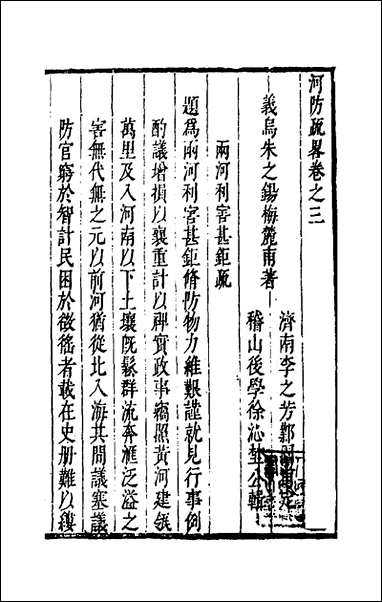 河防疏畧卷之三
濟南李之芳鄴園
義烏朱之錫梅麓甫著
稽山後學徐沁埜公輯
兩河利害甚鉅疏
題爲兩河利害甚鉅脩防物力維艱謹就見行事例
酌議增損以襄重計以裨實政事竊照黃河建瓴
萬里及入河南以下土壤旣鬆群流奔滙泛溢之
害無代無之元以前河猶從北入海其間議塞議
防官窮於智計民困於徵徭者載在史册難以縷